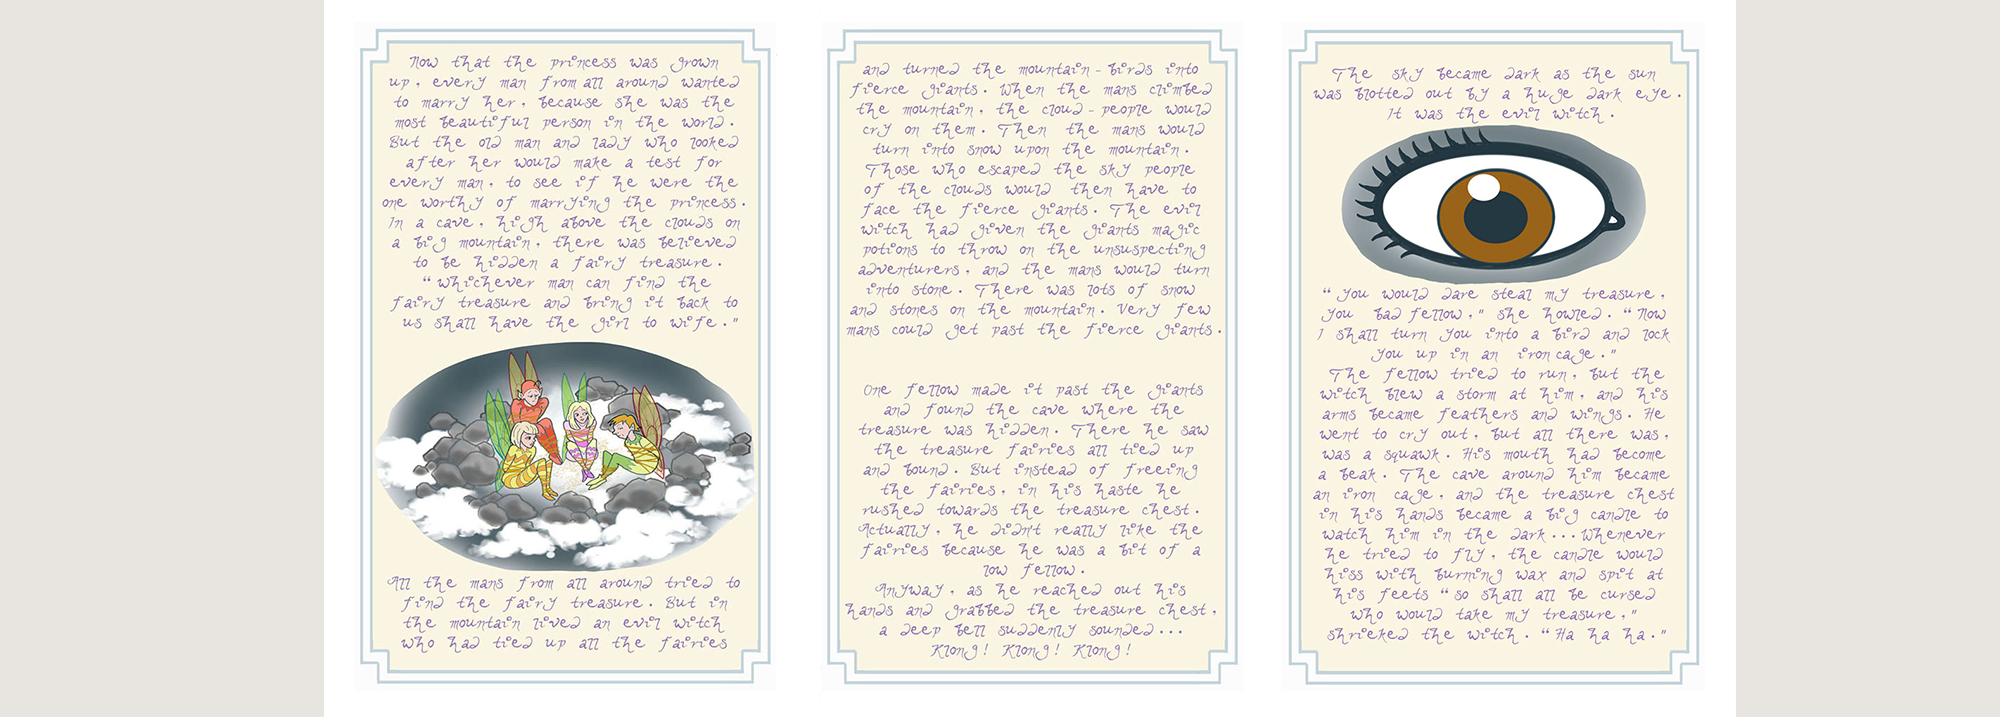 Now that the princess was grown
up, every man from all around wanted
to marry her, because she was the
most beautiful person in the world.
But the old man and lady who looked
after her would make a test for
every man, to see if he were the
one worthy of marrying the princess.
In a cave, high above the clouds on
a big mountain, there was believed
to be hidden a fairy treasure.
"Whichever man can find the
fairy treasure and bring it back to
us shall have the girl to wife."
All the mans from all around tried to
find the fairy treasure. But in
the mountain lived an evil witch
who had tied up all the fairies
and turned the mountain-birds into
fierce giants. When the mans climbed
the mountain, the cloud-people would
cry on them. Then the mans would
turn into snow upon the mountain.
Those who escaped the sky people
of the clouds would then have to
face the fierce giants. The evil
witch had given the giants magic
potions to throw on the unsuspecting
adventurers, and the mans would turn
into stone. There was lots of snow
and stones on the mountain. Very few
mans could get past the fierce giants.
One fellow made it past the giants
and found the cave where the
treasure was hidden. There he saw
the treasure fairies all tied up
and bound. But instead of freeing
the fairies, in his haste he
rushed towards the treasure chest.
Actually, he didn't really like the
fairies because he was a bit of a
low fellow.
Anyway, as he reached out his
hands and grabbed the treasure chest,
a deep bell suddenly sounded...
Klong! Klong! Klong!
The sky became dark as the sun
was blotted out by a huge dark eye.
It was the evil witch.
"You would dare steal my treasure,
you bad fellow," she howled. "Now
I shall turn you into a bird and lock
you up in an iron cage."
The fellow tried to run, but the
witch blew a storm at him, and his
arms became feathers and wings. He
went to cry out, but all there was,
was a squawk. His mouth had become
a beak. The cave around him became
an iron cage, and the treasure chest
in his hands became a big candle to
watch him in the dark...Whenever
he tried to fly, the candle would
hiss with burning wax and spit at
his feets "so shall all be cursed
who would take my treasure,"
shrieked the witch. "Ha ha ha."